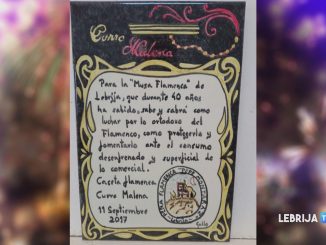 Curro
Malena
Para la "Musa Flamenca" de
Lebrija, que durante 40 años
ha sabido, sabe y sabrá como
luchar por lo ortodoxo del
Flamenco, como protegerlo y
fomentarlo ante el consumo
desenfrenado y superficial de
lo comercial.
Caseta flamenca
Curro Malena
11 Septiembre
2017
LEBRIJA